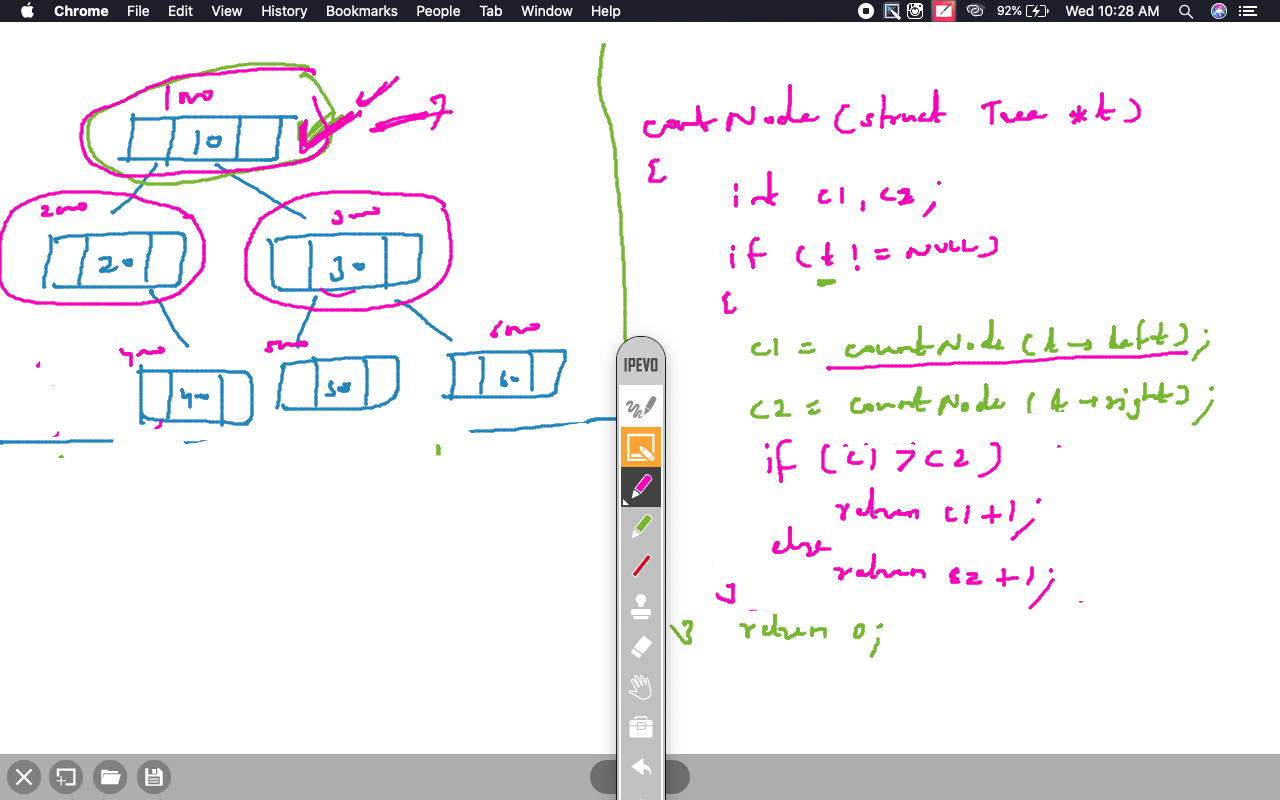 Chrome File Edit View History Bookmarks People Tab Window Help 92% Wed 10:28 AM
100
10
7
200
300
20
30
400
500
600
40
50
60
IPEVO
countNode (struct Tree *t)
{
int c1, c2;
if (t != NULL)
{
c1 = countNode (t→left);
c2 = countNode (t→right);
if (c1 > c2)
return c1+1;
else
return c2+1;
}
} return 0;